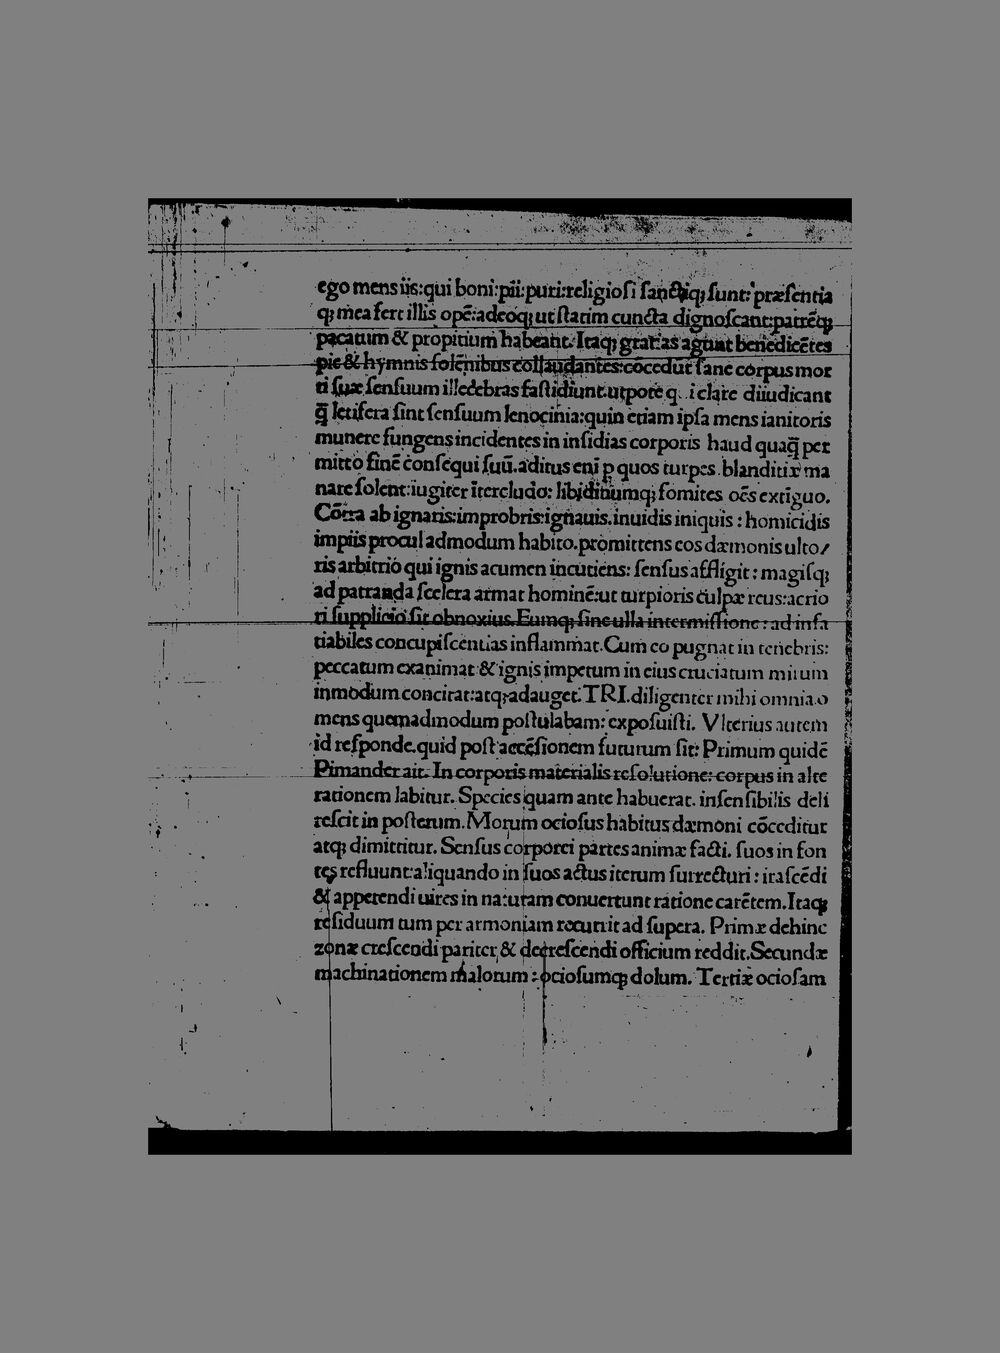 ego mens iis:qui boni:pii:puri:religioſi ſanctiq; ſunt: præſentia
q; mea fert illis opē:adeoq; ut ſtatim cuncta dignoſcant:patrēq;
pacatum & propitium habeant. Itaq; gratias agunt benedicētes
pie & hymnis ſolēnibus collaudantes:cōcedūt ſane corpus mor
ti ſuæ ſenſuum illecebras faſtidiunt.utpote q i clare diiudicant
q̄ letifera ſint ſenſuum lenocinia:quin etiam ipſa mens ianitoris
munere fungens incidentes in inſidias corporis haud quaq̄ per
mitto finē conſequi ſuū.aditus eni p quos turpes blanditiæ ma
nare ſolent:iugiter ītercludo: libidinumq; fomites oēs extīguo.
Cōtra ab ignaris:improbris:ignauis.inuidis iniquis : homicidis
impiis procul admodum habito.promittens eos dæmonis ulto/
ris arbitrio qui ignis acumen incutiens: ſenſus affligit : magiſq;
ad patranda ſcelera armat hominē:ut turpioris culpæ reus:acrio
ri ſupplicio ſit obnoxius.Eumq; ſine ulla intermiſſione : ad inſa
tiabiles concupiſcentias inflammat.Cum eo pugnat in tenebris:
peccatum exanimat & ignis impetum in eius cruciatum mirum
inmodum concitat:atq;adauget.TRI.diligenter mihi omnia o
mens quemadmodum poſtulabam: expoſuiſti. Vlterius autem
id reſponde.quid poſt accēſionem futurum ſit: Primum quidē
Pimander ait. In corporis materialis reſolutione: corpus in alte
rationem labitur. Species quam ante habuerat. inſenſibilis deli
teſcit in poſterum.Morum ocioſus habitus dæmoni cōceditur
atq; dimittitur. Senſus corporei partes animæ facti. ſuos in fon
tes refluunt:aliquando in ſuos actus iterum ſurrecturi : iraſcēdi
& appetendi uires in naturam conuertunt ratione carētem.Itaq;
reſiduum tum per armoniam recurrit ad ſupera. Primæ dehinc
zonæ creſcendi pariter & decreſcendi officium reddit.Secundæ
machinationem malorum : ocioſumq; dolum. Tertiæ ocioſam